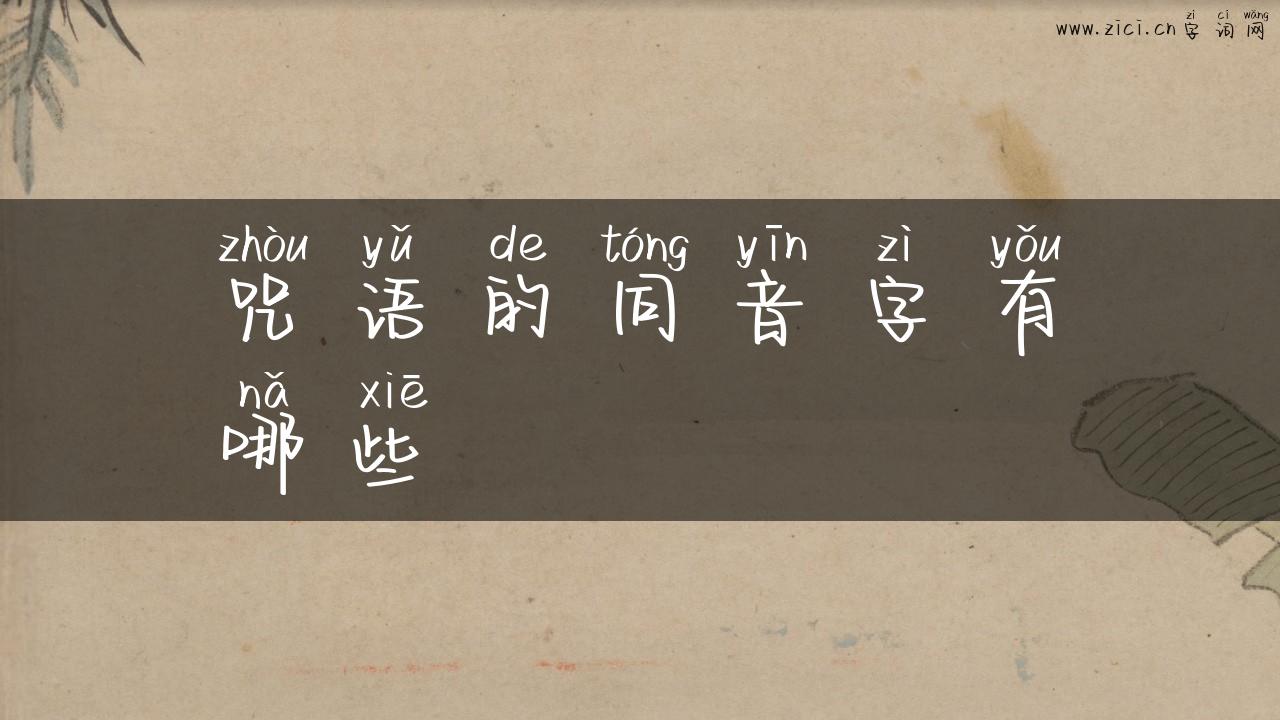 zì cí wǎng
www.zici.cn 字词网
zhòu yǔ de tóng yīn zì yǒu
咒语的同音字有
nǎ xiē
哪些